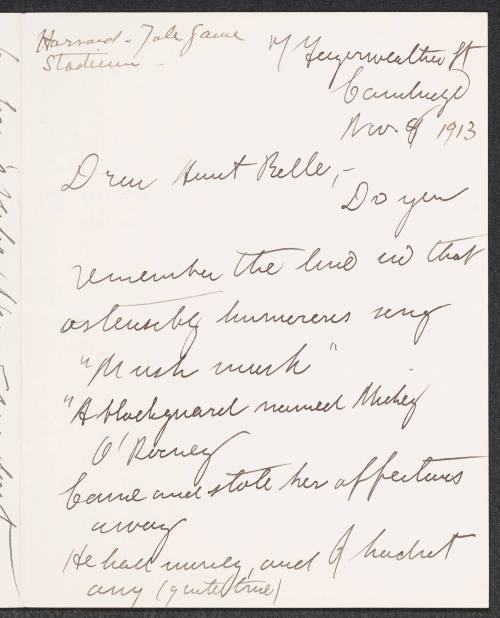 Harvard - Yale Game
Stadium -
17 Fayerweather St
Cambridge
Nov. 8 1913
Dear Aunt Belle,-
Do you
remember the line in that
ostensibly humorous song
"Mush mush"
"A blackguard named Mickey
O'Rooney
Came and stole her affections
away
He had money, and I hadnt
any (quite true)